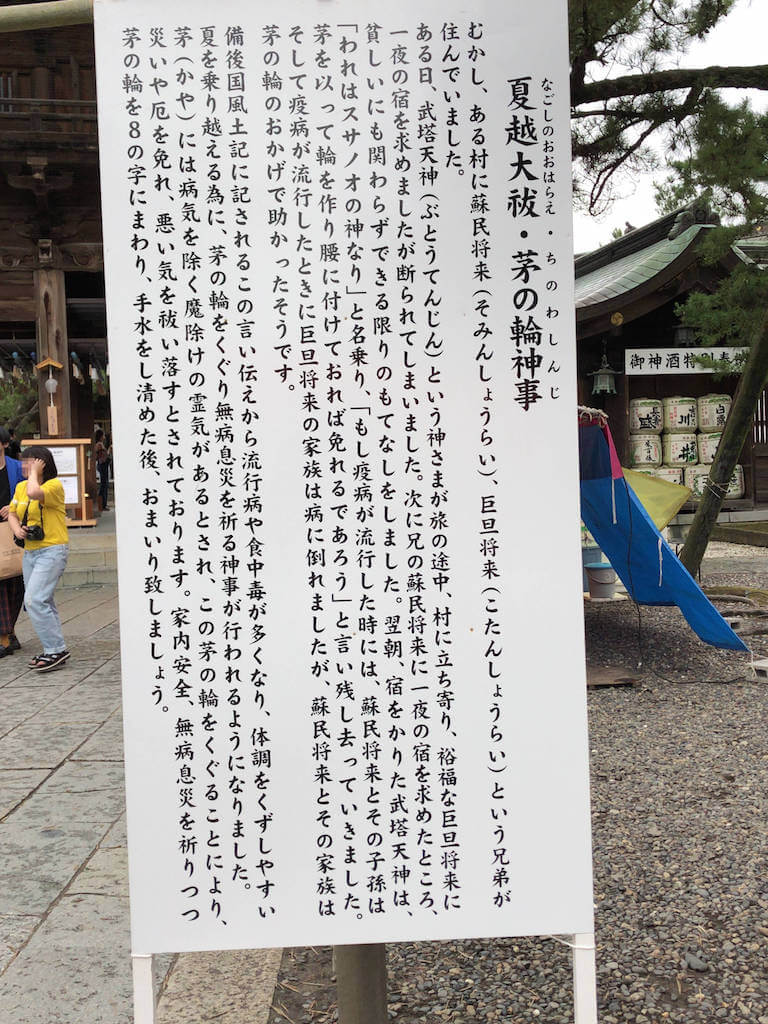 なごしのおおはらえ・ちのわしんじ
夏越大祓・茅の輪神事
むかし、ある村に蘇民将来(そみんしょうらい)、巨旦将来(こたんしょうらい)という兄弟が
住んでいました。
ある日、武塔天神(ぶとうてんじん)という神さまが旅の途中、村に立ち寄り、裕福な巨旦将来に
一夜の宿を求めましたが断られてしまいました。次に兄の蘇民将来に一夜の宿を求めたところ、
貧しいにも関わらずできる限りのもてなしをしました。翌朝、宿をかりた武塔天神は、
「われはスサノオの神なり」と名乗り、「もし疫病が流行した時には、蘇民将来とその子孫は
茅を以って輪を作り腰に付けておれば免れるであろう」と言い残し去っていきました。
そして疫病が流行したときに巨旦将来の家族は病に倒れましたが、蘇民将来とその家族は
茅の輪のおかげで助かったそうです。
備後国風土記に記されるこの言い伝えから流行病や食中毒が多くなり、体調をくずしやすい
夏を乗り越える為に、茅の輪をくぐり無病息災を祈る神事が行われるようになりました。
茅(かや)には病気を除く魔除けの霊気があるとされ、この茅の輪をくぐることにより、
災いや厄を免れ、悪い気を祓い落すとされております。家内安全、無病息災を祈りつつ
茅の輪を8の字にまわり、手水をし清めた後、おまいり致しましょう。
御神酒特別奉
白露